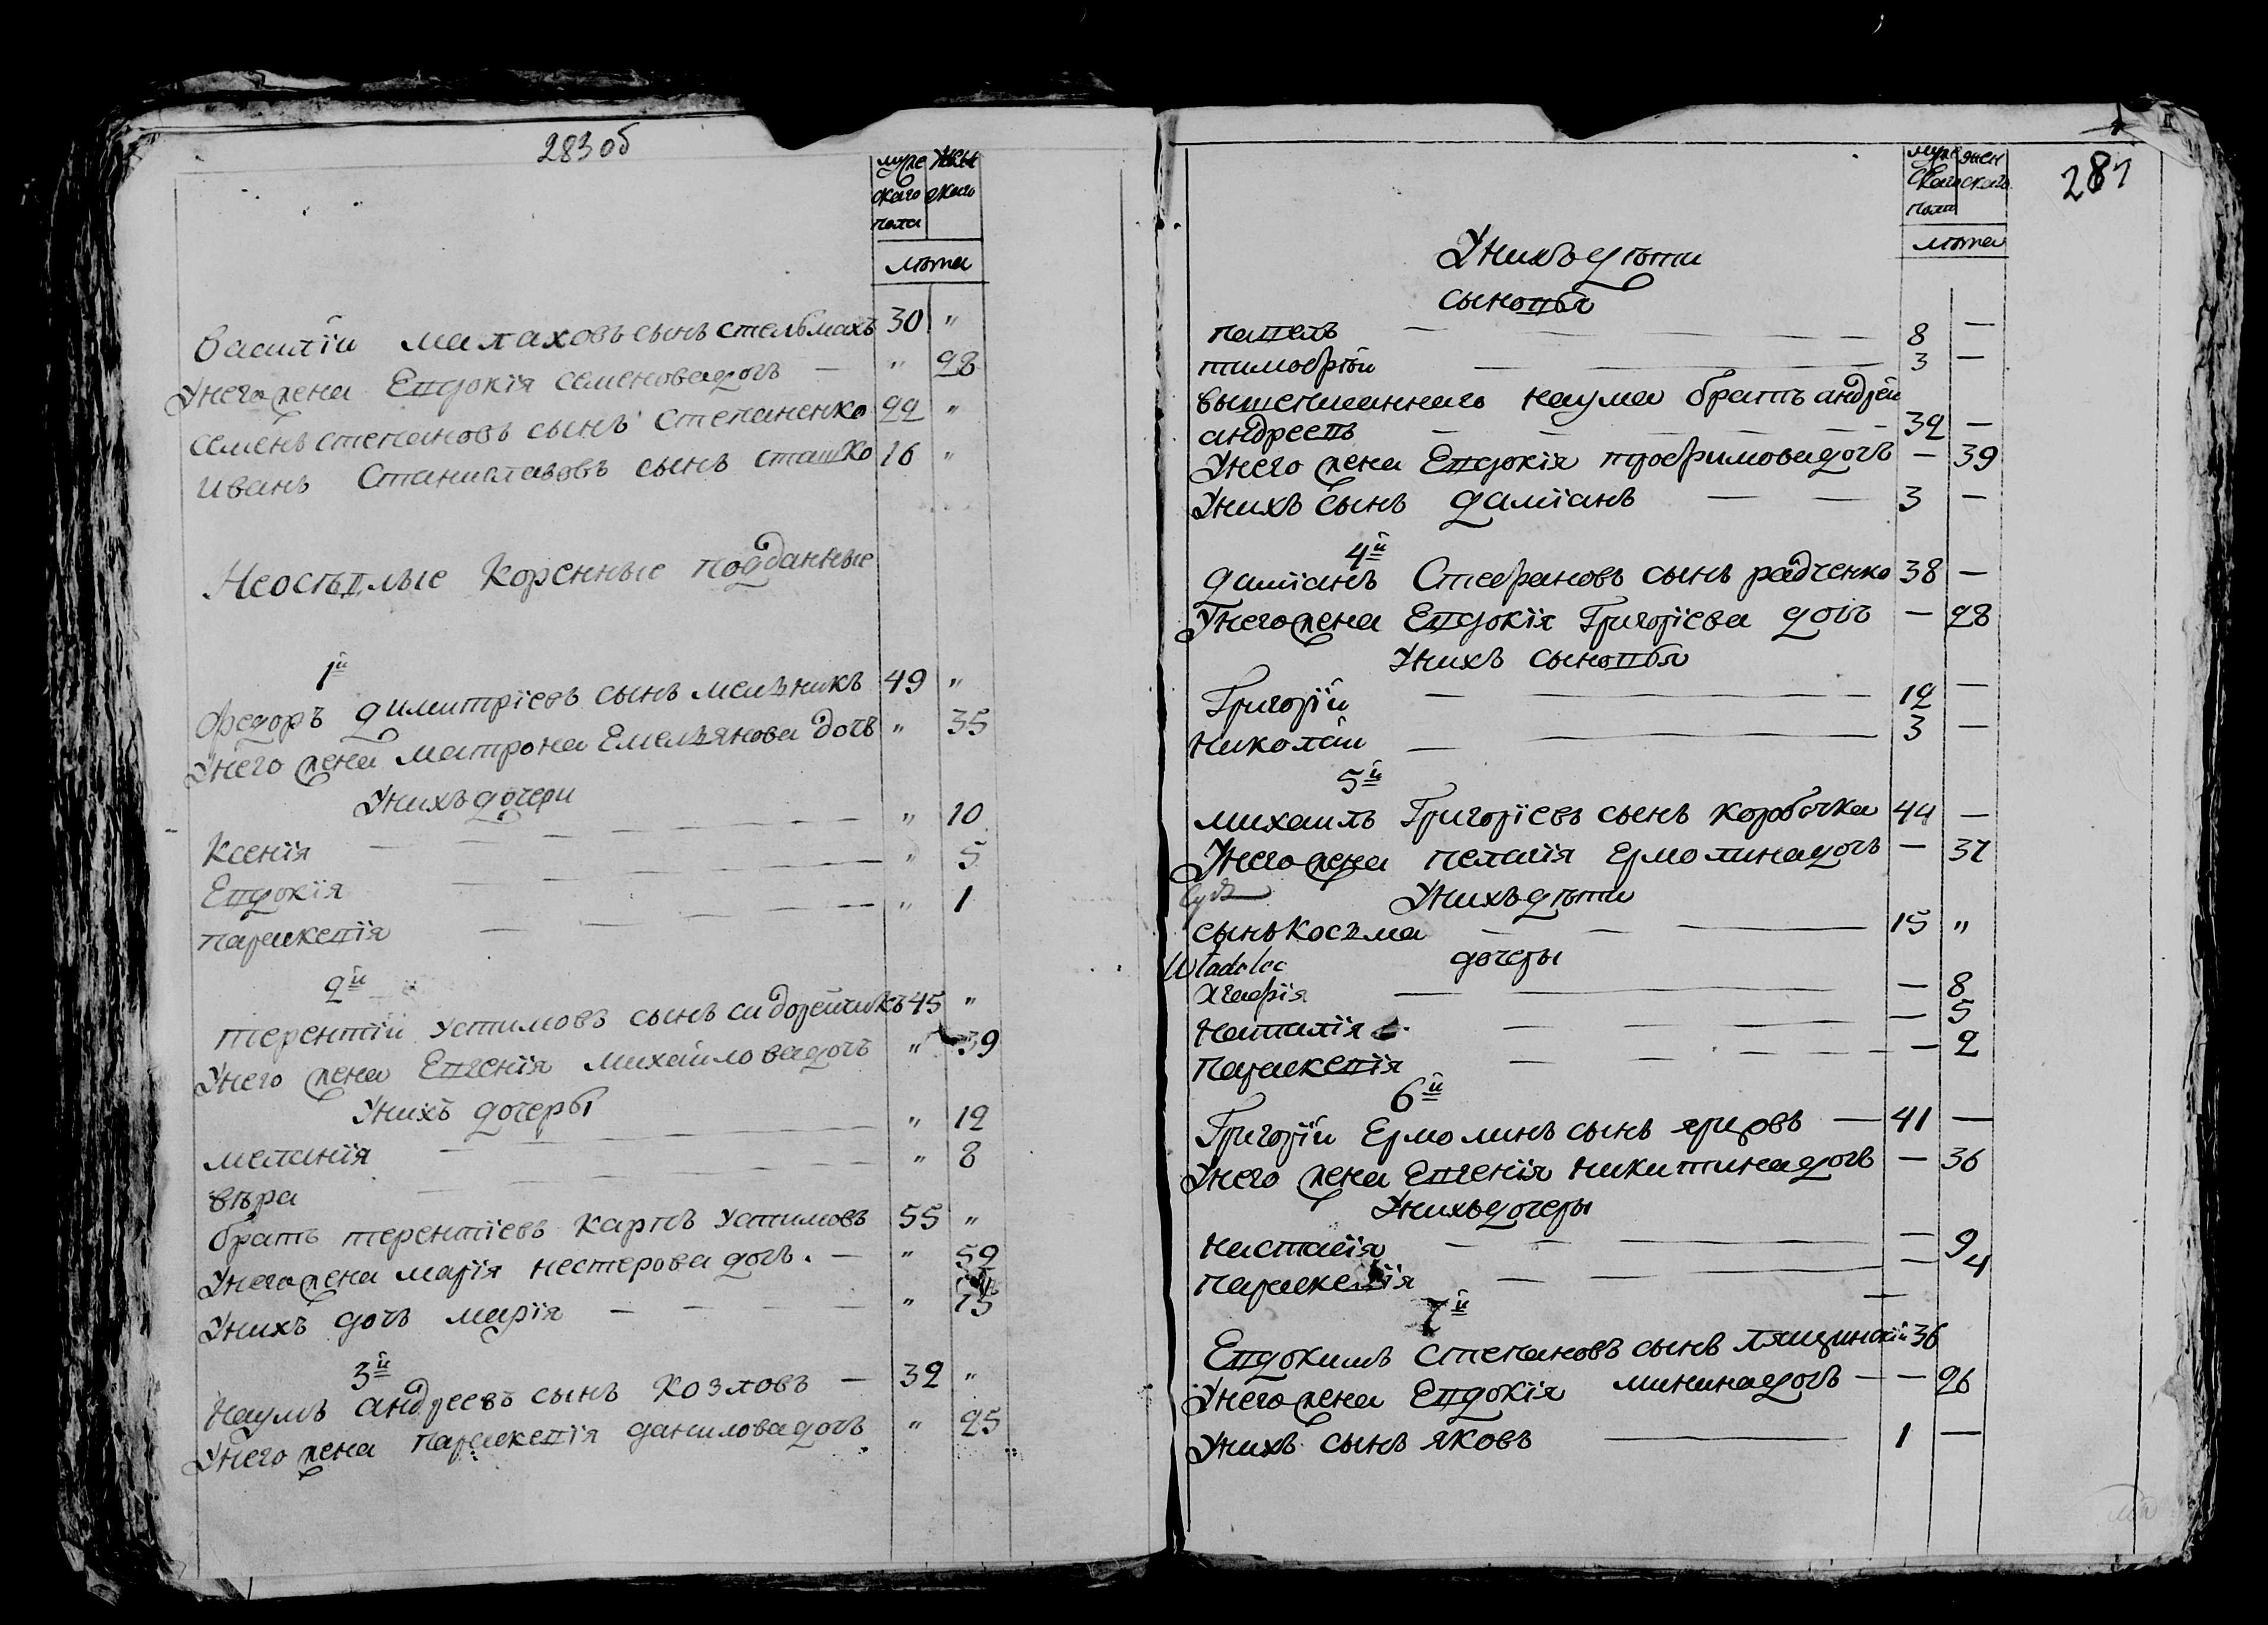 283об
муже
скаго
пола
жен
скаго
лѣта
Василїй малаховъ сынъ стельмахъ 30 "
Унего жена Евдокія семеновадочь — " 28
семенъ степановъ сынъ степаненко 22 "
иванъ Станиславовъ сынъ сташко 16 "
Неосѣдлые Коренные подданные
1й
Федоръ димитрїевъ сынъ мельникъ 49 "
Унего жена матрона Емельянова дочь " 35
Унихъ дочери
Ксенїя — " 10
Евдокїя — " 5
параскевїя — " 1
2й
терентїй Устимовъ сынъ сидорейчикъ 45 "
Унего жена Евгенїя михайловадочь " 39
Унихъ дочеры
меланїя — " 12
вѣра — " 8
братъ терентїевъ Карпъ Устимовъ 55 "
Унего жена марїя нестерова дочь. — " 52
Унихъ дочь марїя — " 15
3й
Наумъ андреевъ сынъ Козловъ — 32 "
Унего жена параскевїя даниловадочь " 25
муже
скаго
пола
жен
скаго
лѣта
Унихъ дѣти
сыновья
павелъ — 8 —
тимофѣй — 3 —
вышеписаннаго наума братъ андрей
андреевъ — 32 —
Унего жена Евдокїя трофимовадочь — 39
Унихъ сынъ дамїанъ — 3 —
4й
дамїанъ Стефановъ сынъ радченко 38 —
Унего жена Евдокїя Григорїева дочь — 28
Унихъ сыновья
Григорїй — 12 —
николай — 3 —
5й
михаилъ Григорїевъ сынъ коробочка 44 —
Унего жена пелагїя Ермолинадочь — 37
Унихъ дѣти
сынъ Косьма — 15 "
дочеры
Агафїя — 8
Наталїя — 5
параскевїя — 2
6й
Григорїй Ермолинъ сынъ ярцовъ — 41 —
Унего жена Евгенїя никитинадочь — 36
Унихъ дочеры
настасїя — 9
параскевїя — 4
7й
Евдокимъ степановъ сынъ лящинскїй 36
Унего жена Евдокїя мининадочь — 26
Унихъ сынъ яковъ — 1 —